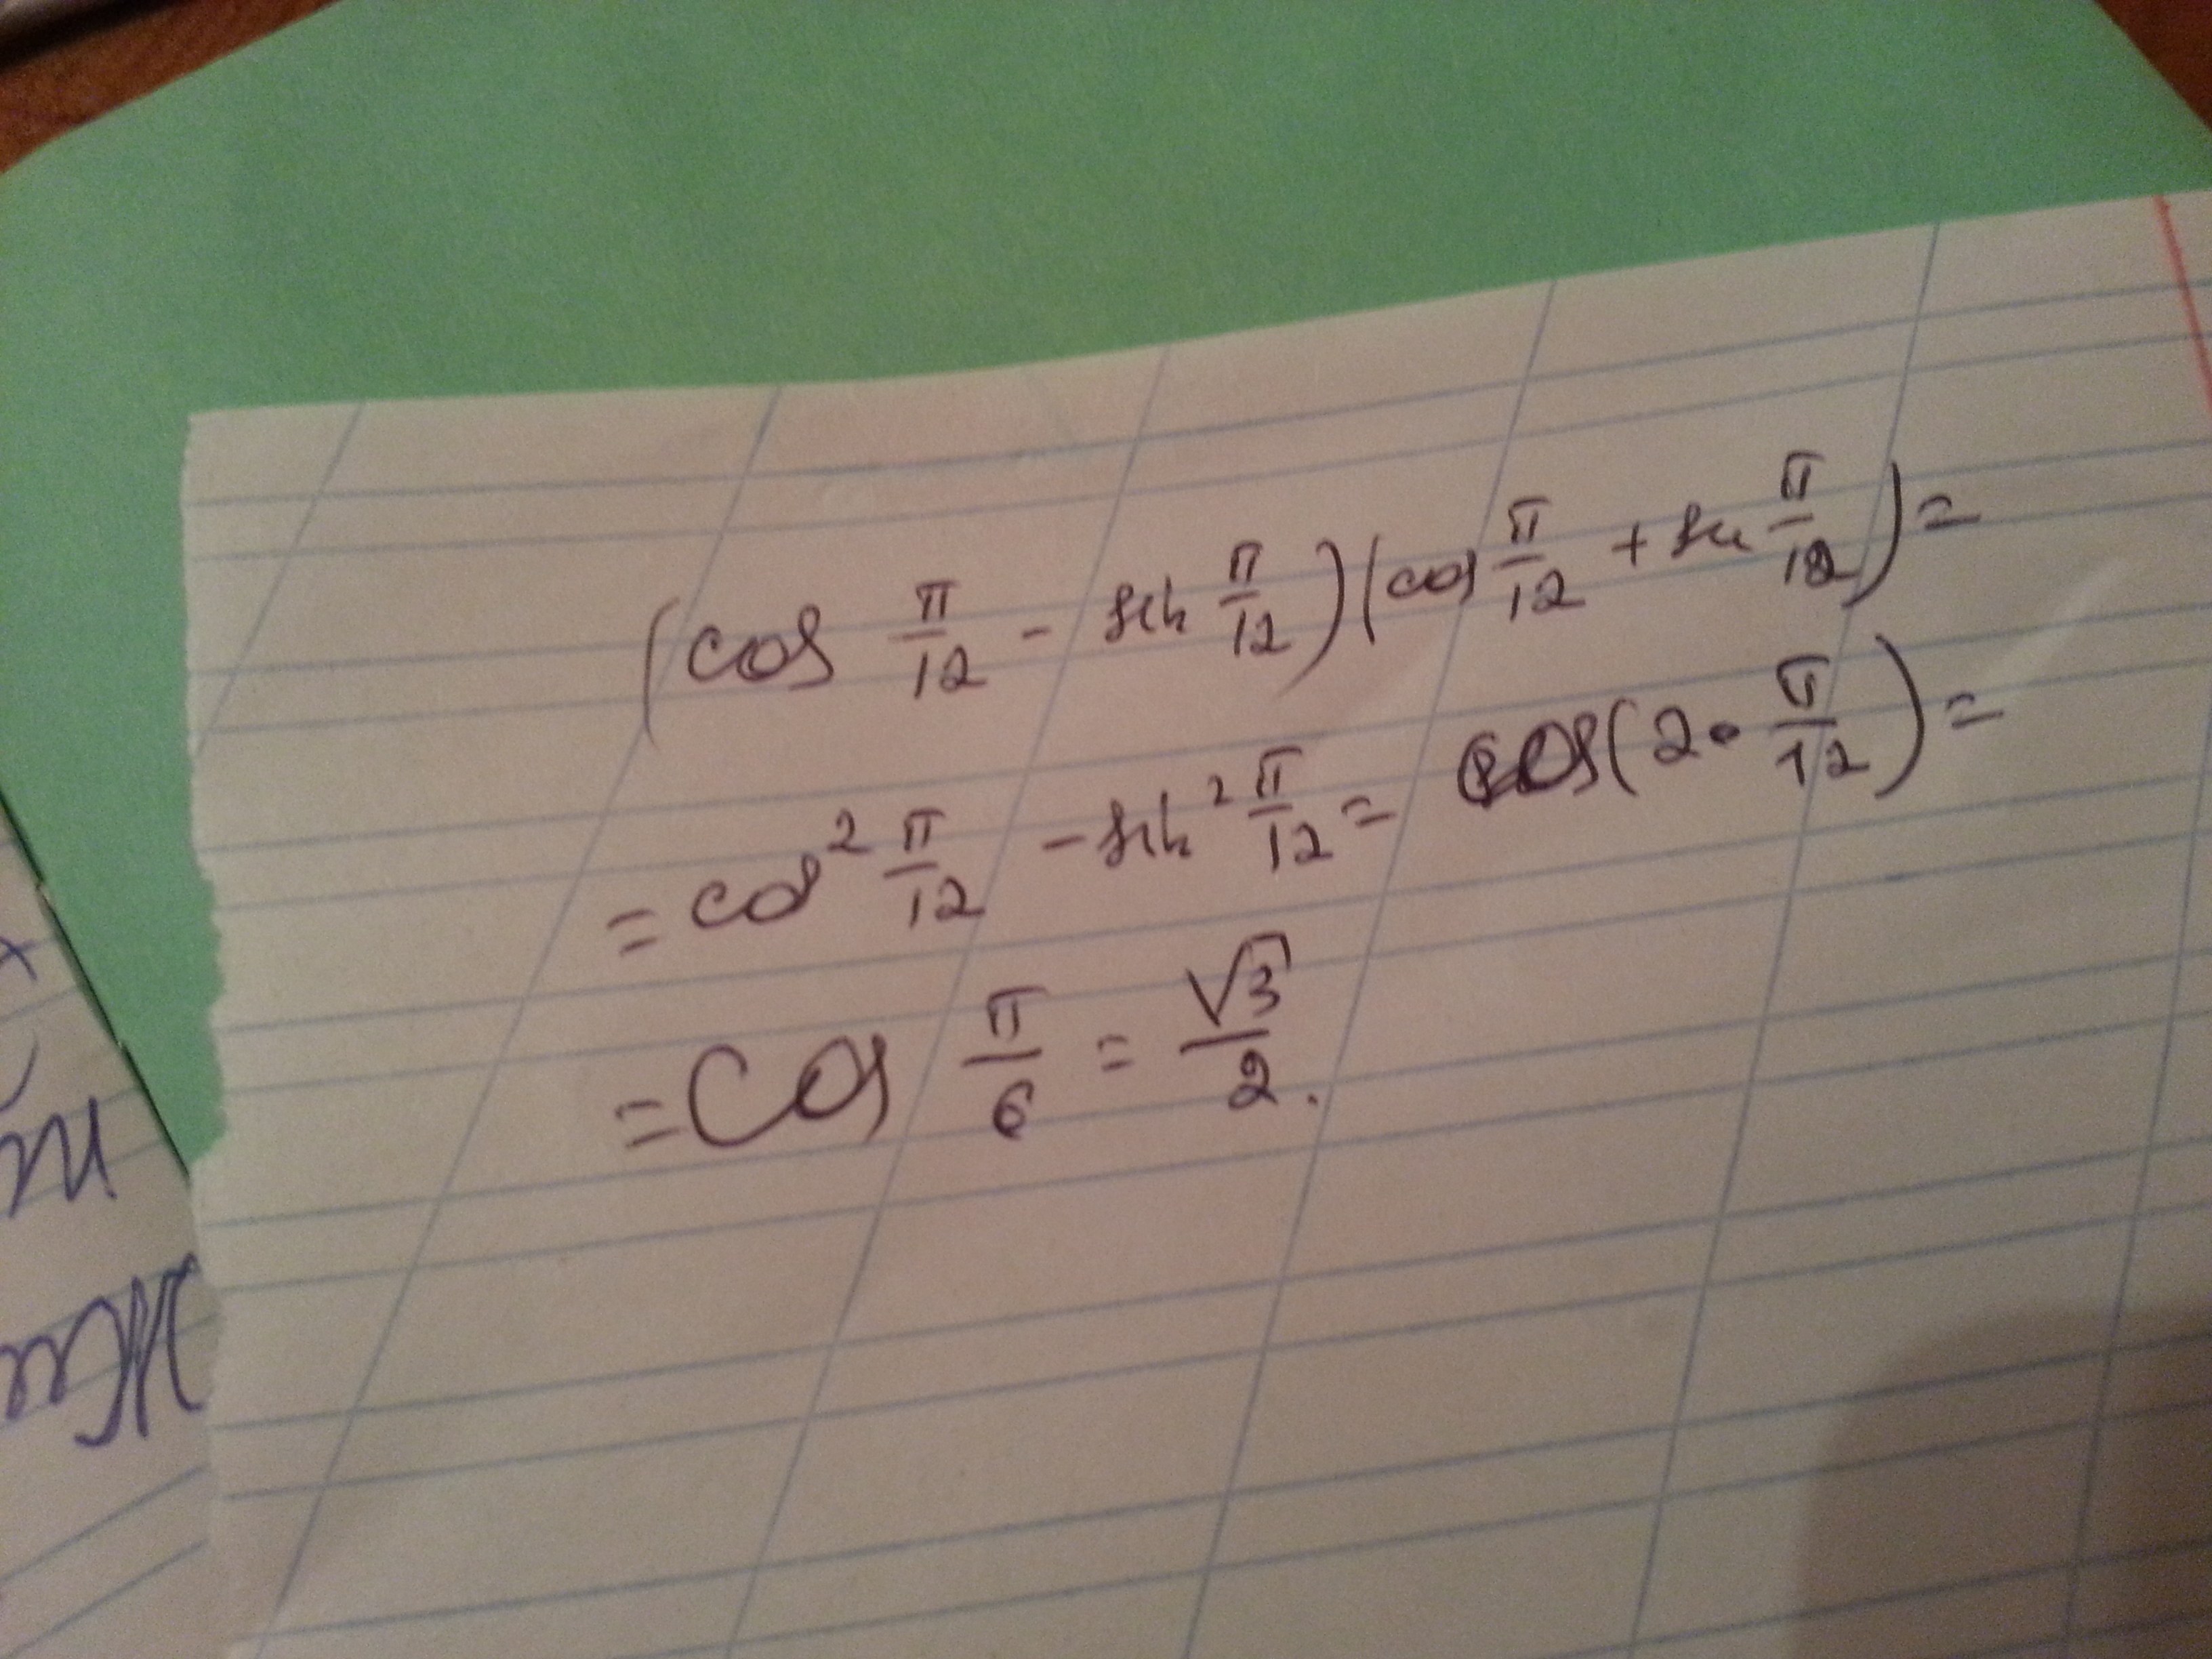 (cos π/12 - sin π/12)(cos π/12 + sin π/12) =
= cos² π/12 - sin² π/12 = cos(2 • π/12) =
= cos π/6 = √3/2.